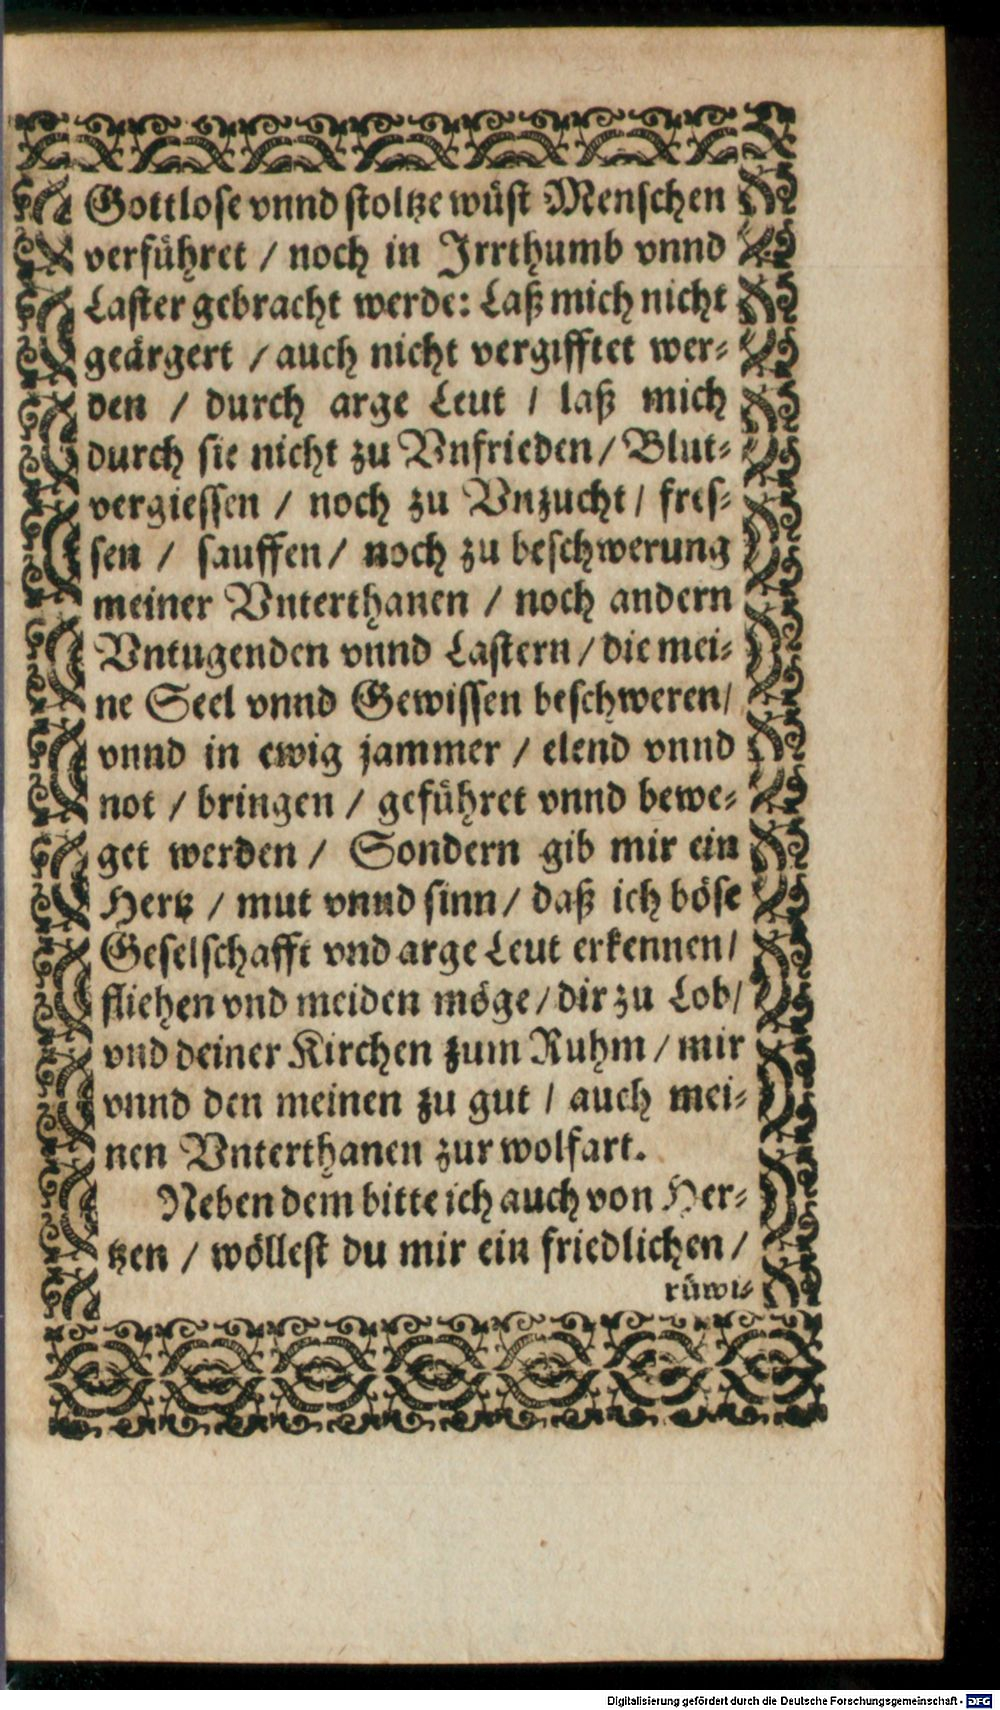 Gottlose vnnd stoltze wüst Menschen
verführet / noch in Irrthumb vnnd
Laster gebracht werde: Laß mich nicht
geärgert / auch nicht vergifftet wer-
den / durch arge Leut / laß mich
durch sie nicht zu Vnfrieden / Blut-
vergiessen / noch zu Vnzucht / fres-
sen / sauffen / noch zu beschwerung
meiner Vnterthanen / noch andern
Vntugenden vnnd Lastern / die mei-
ne Seel vnnd Gewissen beschweren /
vnnd in ewig jammer / elend vnnd
not / bringen / geführet vnnd bewe-
get werden / Sondern gib mir ein
Hertz / mut vnnd sinn / daß ich böse
Geselschafft vnd arge Leut erkennen /
fliehen vnd meiden möge / dir zu Lob /
vnd deiner Kirchen zum Ruhm / mir
vnnd den meinen zu gut / auch mei-
nen Vnterthanen zur wolfart.
Neben dem bitte ich auch von Her-
tzen / wöllest du mir ein friedlichen /
rüwi-
Digitalisierung gefördert durch die Deutsche Forschungsgemeinschaft - DFG